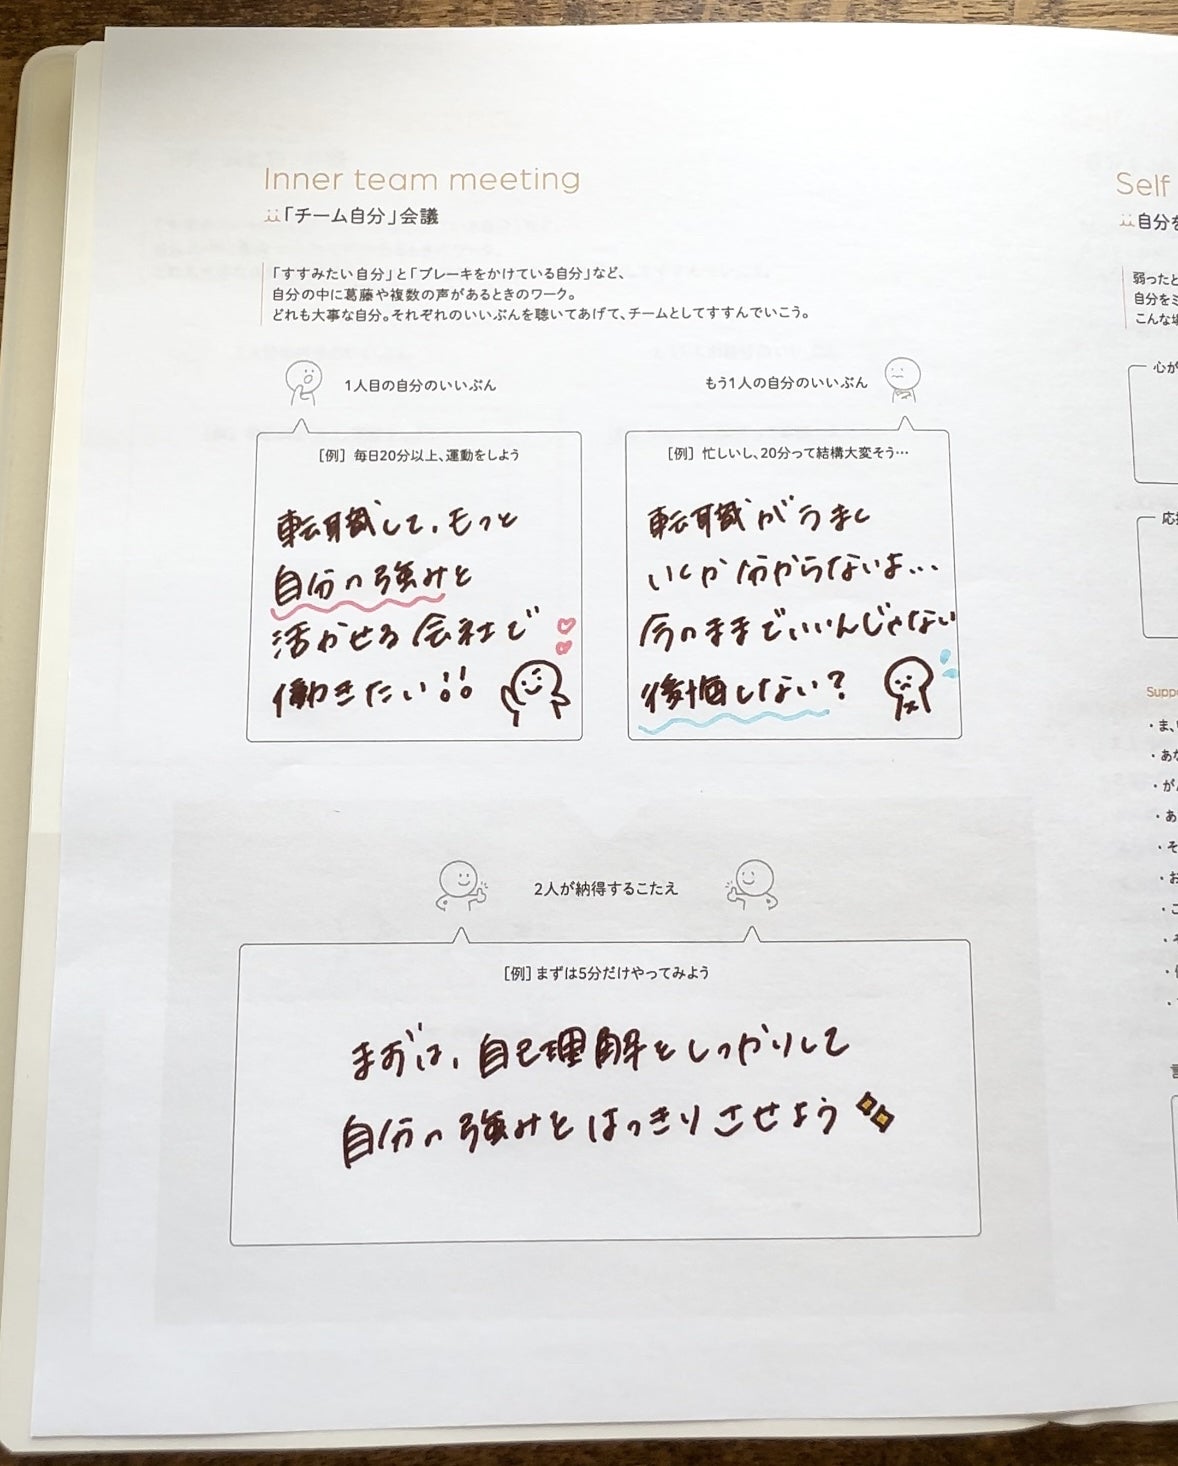 Inner team meeting
「チーム自分」会議
「すすみたい自分」と「ブレーキをかけている自分」など、
自分の中に葛藤や複数の声があるときのワーク。
どれも大事な自分。それぞれのいいぶんを聴いてあげて、チームとしてすすんでいこう。
1人目の自分のいいぶん
[例] 毎日20分以上、運動をしよう
転職して、もっと
自分の強みを
活かせる会社で
働きたい!!
もう1人の自分のいいぶん
[例] 忙しいし、20分って結構大変そう…
転職がうまく
いくか分からないよ...
今のままでいいんじゃない
後悔しない?
2人が納得するこたえ
[例] まずは5分だけやってみよう
まずは、自己理解をしっかりして
自分の強みをはっきりさせよう
Self
自分を
弱ったと
自分をミ
こんな場
心が
応援
Suppo
・ま、い
・あな
・がん
・あ
・そ
・お
・こ